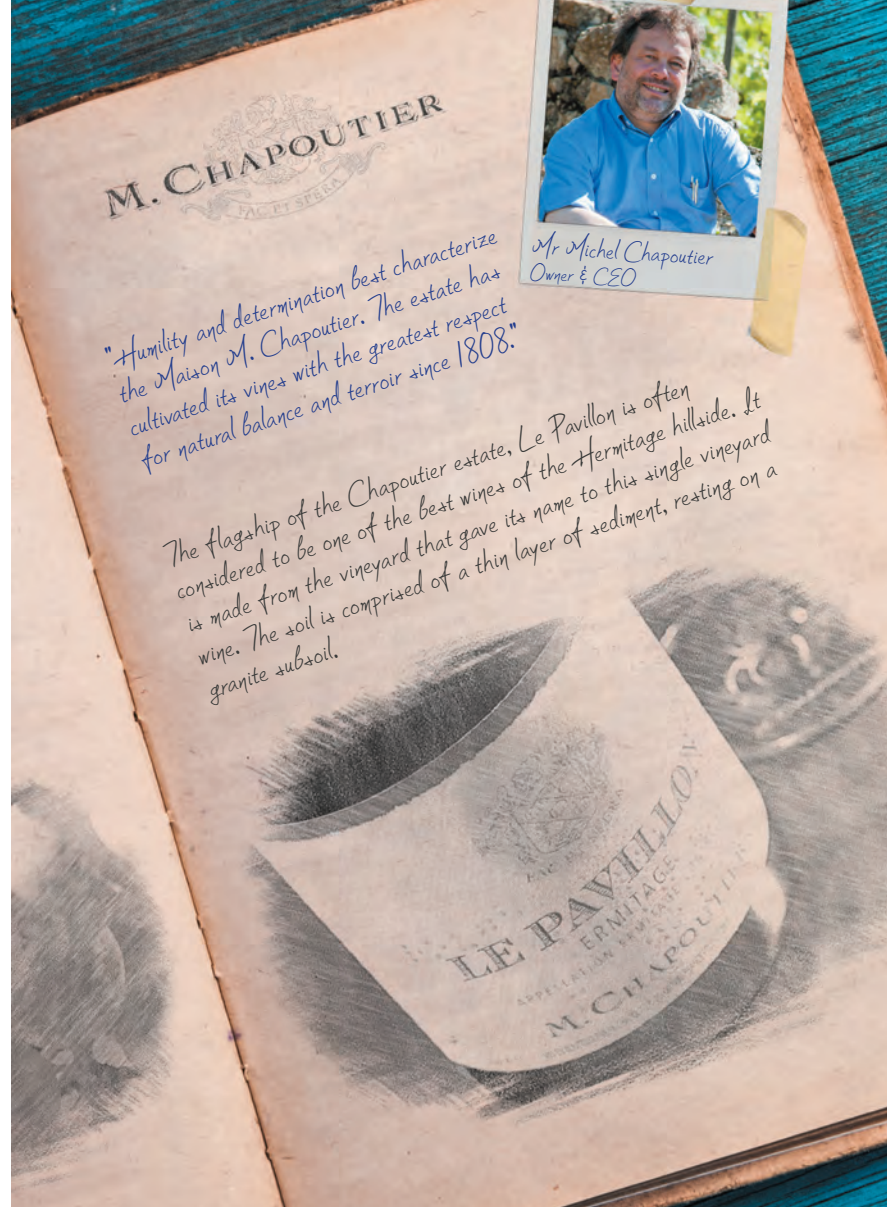 M. CHAPOUTIER
FAC ET SPERA
Mr Michel Chapoutier
Owner & CEO
"Humility and determination best characterize
the Maison M. Chapoutier. The estate has
cultivated its vines with the greatest respect
for natural balance and terroir since 1808."
The flagship of the Chapoutier estate, Le Pavillon is often
considered to be one of the best wines of the Hermitage hillside. It
is made from the vineyard that gave its name to this single vineyard
wine. The soil is comprised of a thin layer of sediment, resting on a
granite subsoil.
LE PAVILLON
ERMITAGE
M. CHAPOUTIER